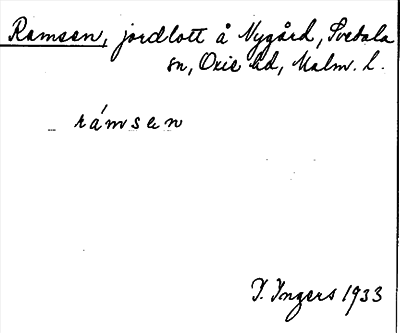 Ramsen, jordlott å Nygård, Svedala
sn, Oxie hd, Malm. l.
rámsen
I. Ingers 1933